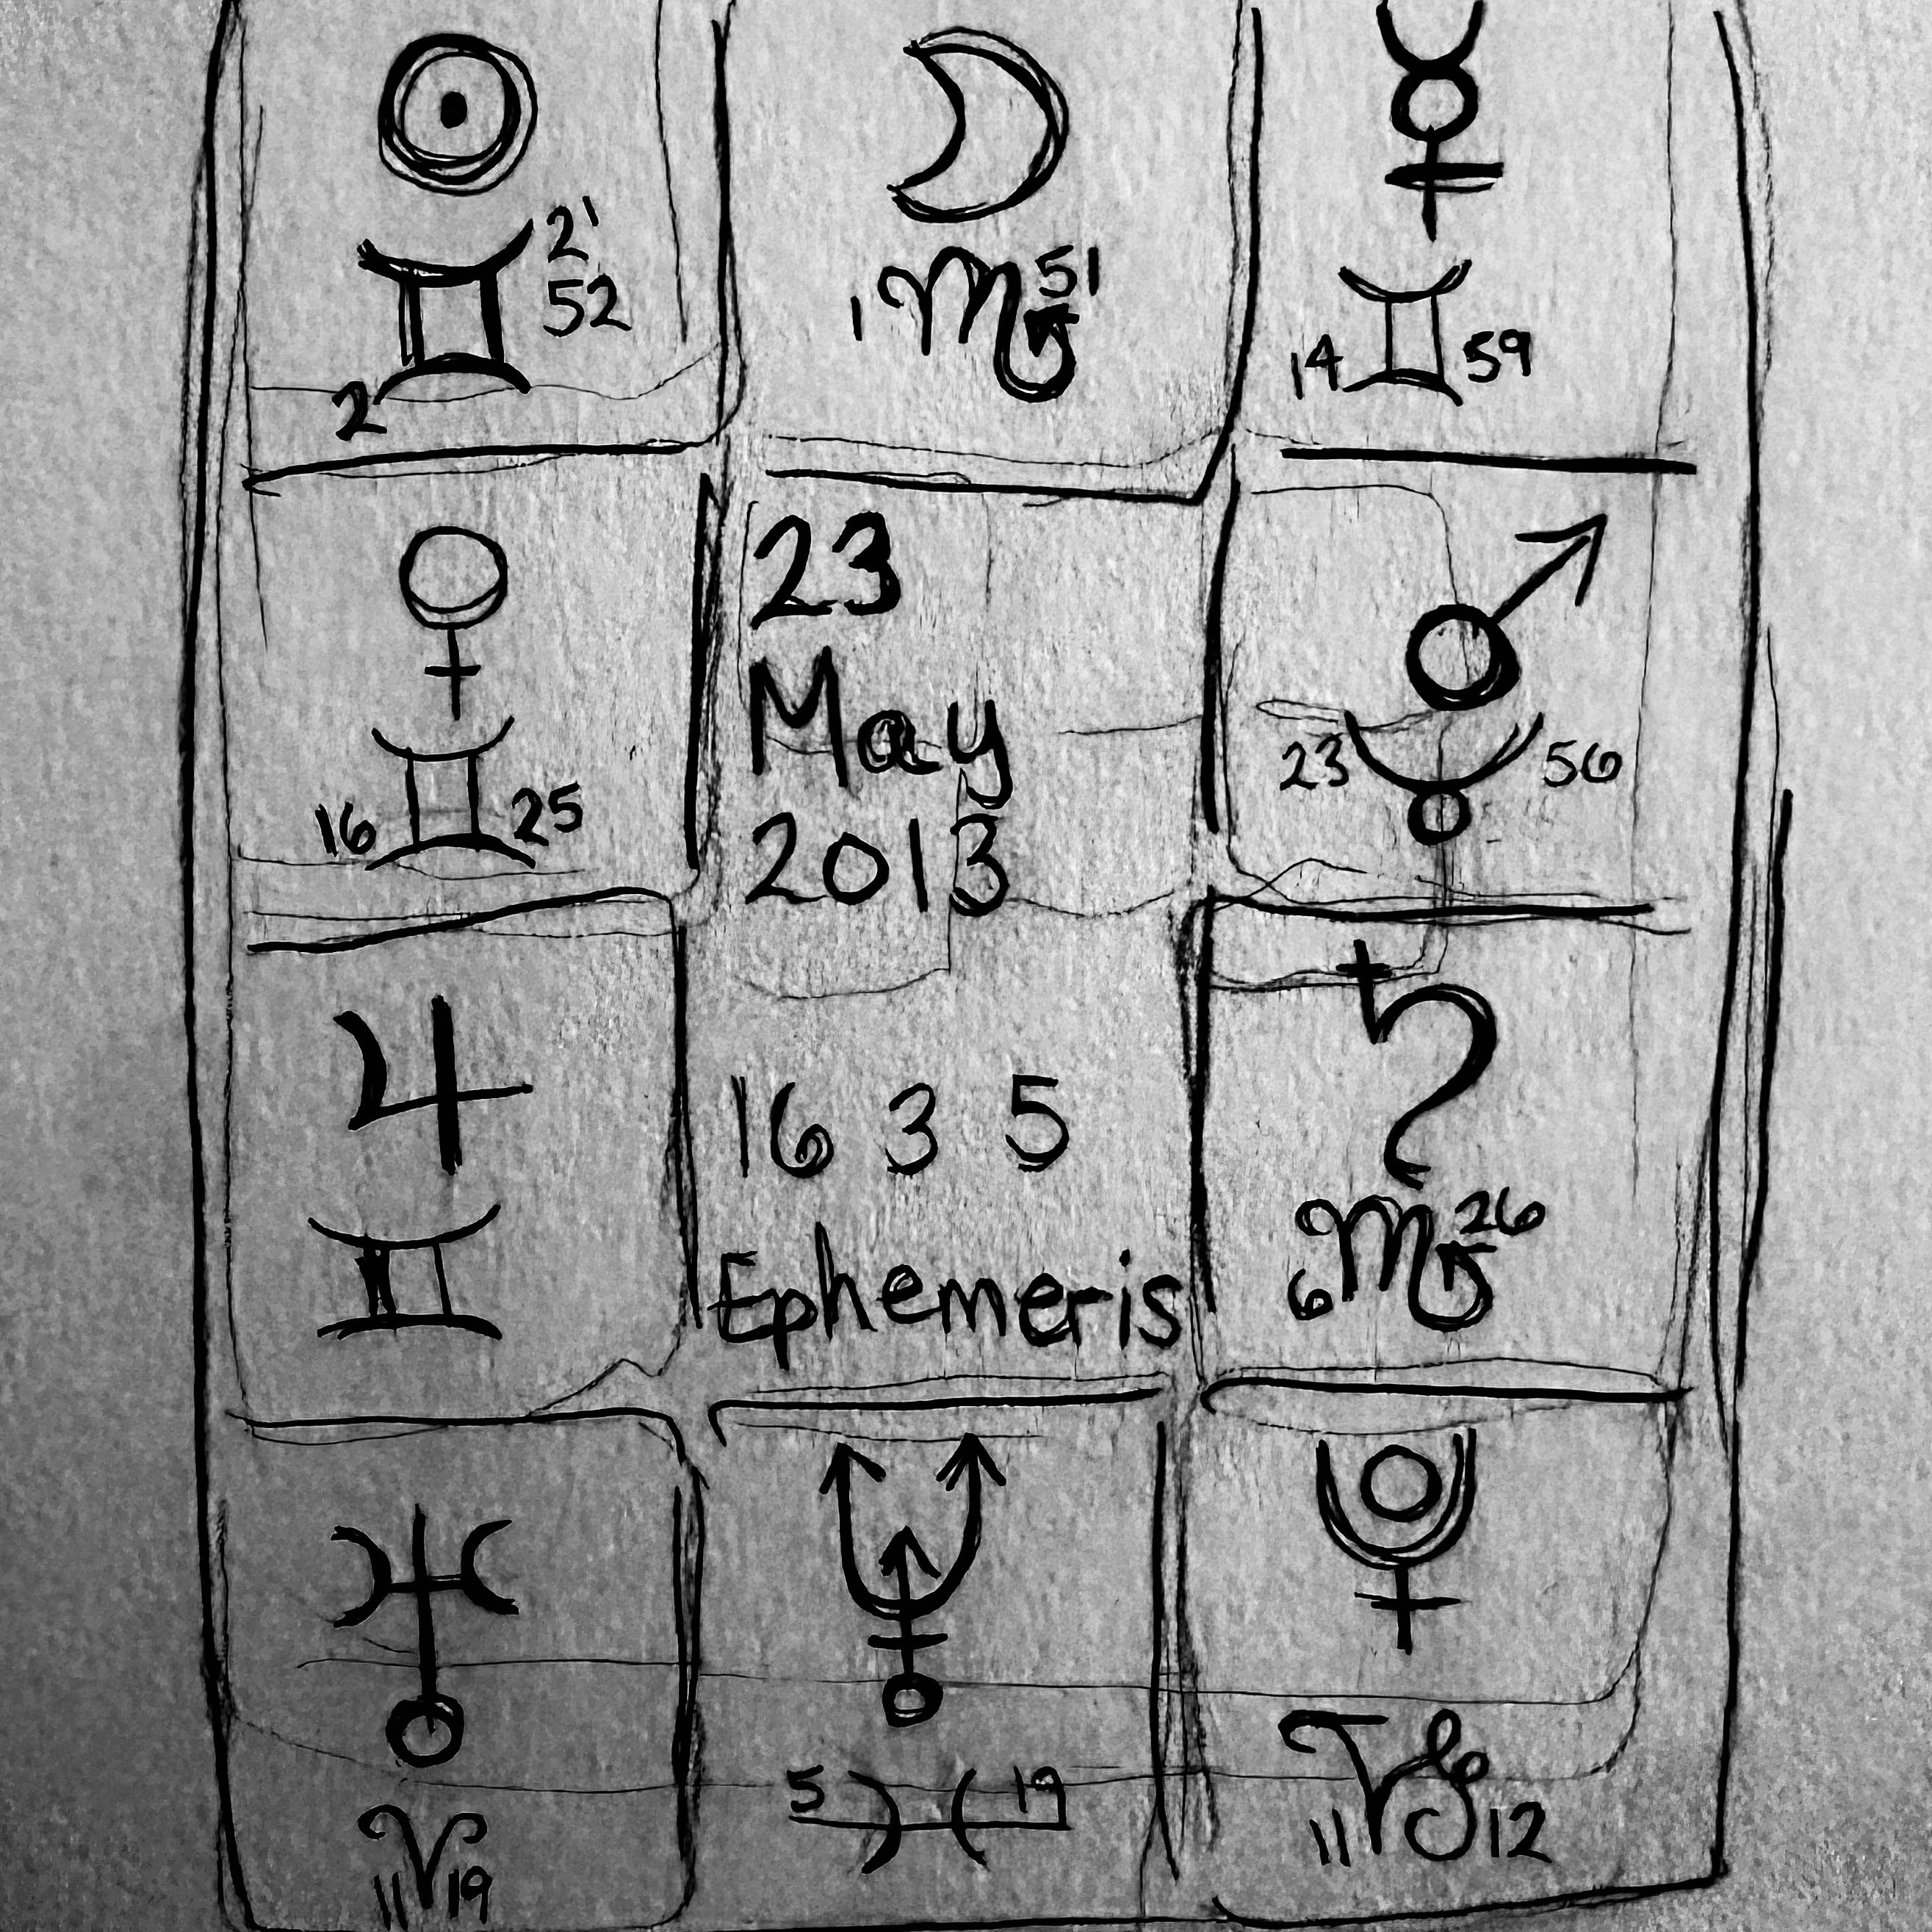 ☉ ☽ ☿
♊ 2' 52
2
1 ♏ 51
14 ♊ 59
♀ ♂
16 ♊ 25
23
May
2013
23 ♉ 56
♃ ♄
♊
16 3 5
Ephemeris
6 ♏ 26
♅ ♆ ♇
11 ♈ 19
5 ♓ 19
11 ♑ 12